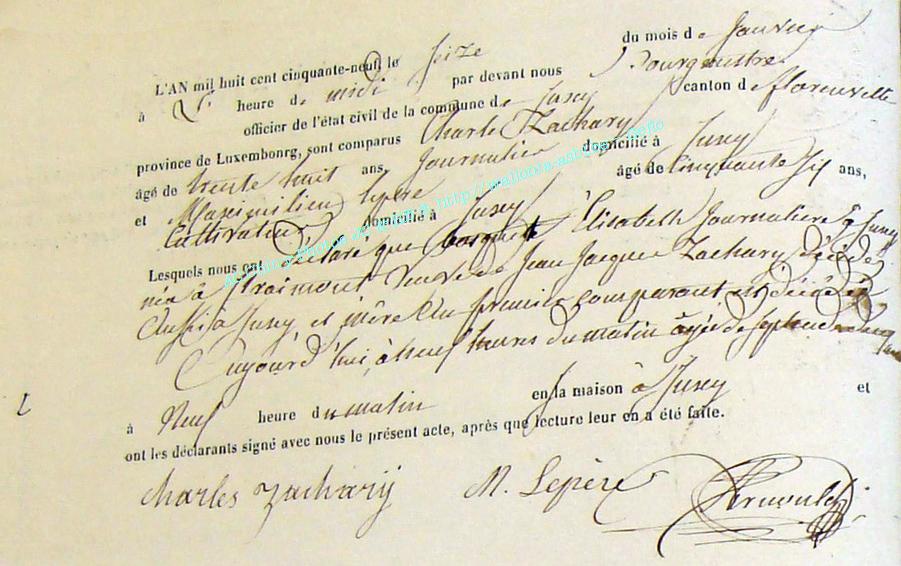 L'AN mil huit cent cinquante-neuf le seize du mois de Janvier
à heure de midi par devant nous Bourgmestre
officier de l'état civil de la commune de Jusey canton de florenville
province de Luxembourg, sont comparus Charle Zachary
âgé de trente huit ans, Journalier domicilié à Jusey
et Maximilien lepere âgé de Cinquante Six ans,
Cultivateur domicilié à Jusey
Lesquels nous ont déclaré que Elisabeth Journaliere à Jusey
née à Straimont veuve de Jean Jacque Zachary
aussi à Jusey, et mère du premier comparant, est décédée
aujourd'hui, à neuf heures du matin âgée de
à Neuf heure du matin en la maison à Jusey et
ont les déclarants signé avec nous le présent acte, après que lecture leur en a été faite.
Charles Zachary M. Lepère